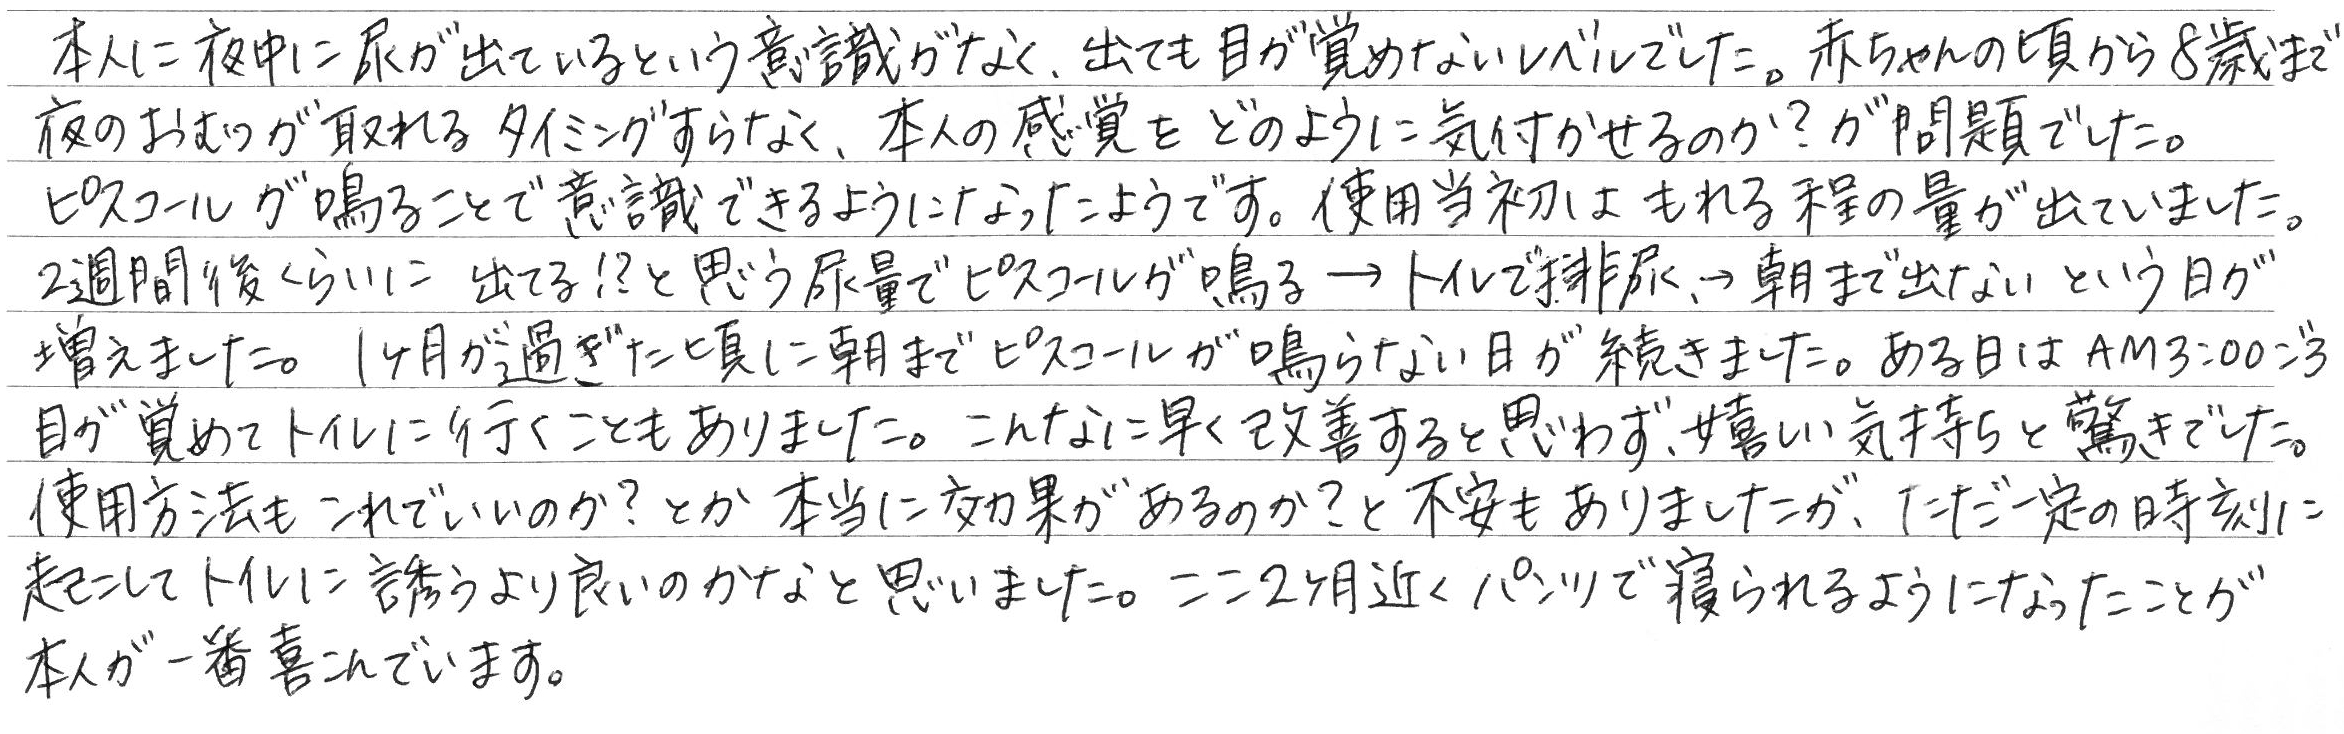 本人に夜中に尿が出ているという意識がなく、出ても目が覚めないレベルでした。赤ちゃんの頃から8歳まで
夜のおむつが取れるタイミングすらなく、本人の感覚をどのように気付かせるのか?が問題でした。
ピスコールが鳴ることで意識できるようになったようです。使用当初はもれる程の量が出ていました。
2週間後くらいに 出てる!?と思う尿量でピスコールが鳴る→トイレで排尿、→朝まで出ないという日が
増えました。1ヶ月が過ぎた頃に朝までピスコールが鳴らない日が続きました。ある日はAM3:00ごろ
目が覚めてトイレに行くこともありました。こんなに早く改善すると思わず、嬉しい気持ちと驚きでした。
使用方法もこれでいいのか?とか本当に効果があるのか?と不安もありましたが、ただ一定の時刻に
起こしてトイレに誘うより良いのかなと思いました。ここ2ヶ月近くパンツで寝られるようになったことが
本人が一番喜こんでいます。